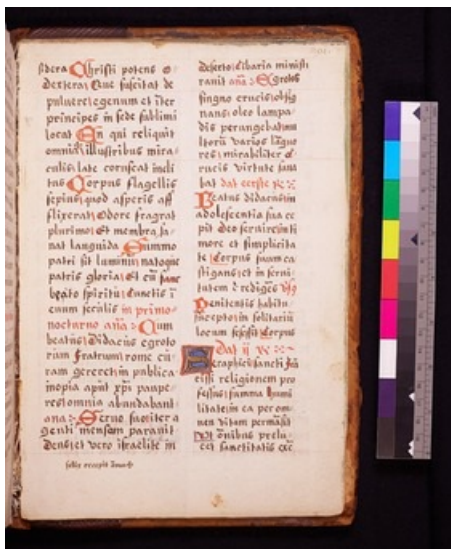 sidera Christi potens
dextera Que suscitat de
pulvere egenum et
principes in sede sublimi
locat En qui reliquit
omnia illustribus mira
culis late coruscat incli
tus Corpus flagellis
sepius quod asperis aff
lixerat Odore fragrat
plurimo Et membra sa
nat languida Summo
patri sit lumini natoque
patris gloria Et cu sanc
beato spiritui Cunctis i
euum seculis in primo
nocturno ana Cum
beatus Didacus egroto
rum fratrum rome cu
ram gereret in publica
inopia aput xpi paupe
res omnia abundabant
ana Seruo suo iter a
genti mensam parauit
Deus et vero israelite in
felix recepit
deserto cibaria minist
rauit ana Egrotos
singno crucis obsig
nans oleo lampa
dis perungebat mu
ltorum varios lango
res mirabiliter
crucis virtute sana
bat
Beatus didacus in
adolescentia sua ce
pit deo seruire in ti
more et simplicita
te Corpus suum ca
stigans et in serui
tutem redigens
Penitentis habitu
suscepto in solitariu
locum secessit Corpus
Dat ii
Seraphici sancti fra
cisci religionem pro
fessus summa humi
litate in ea per om
nem vitam permasit
omnibus prelu
cet sanctitatis exe